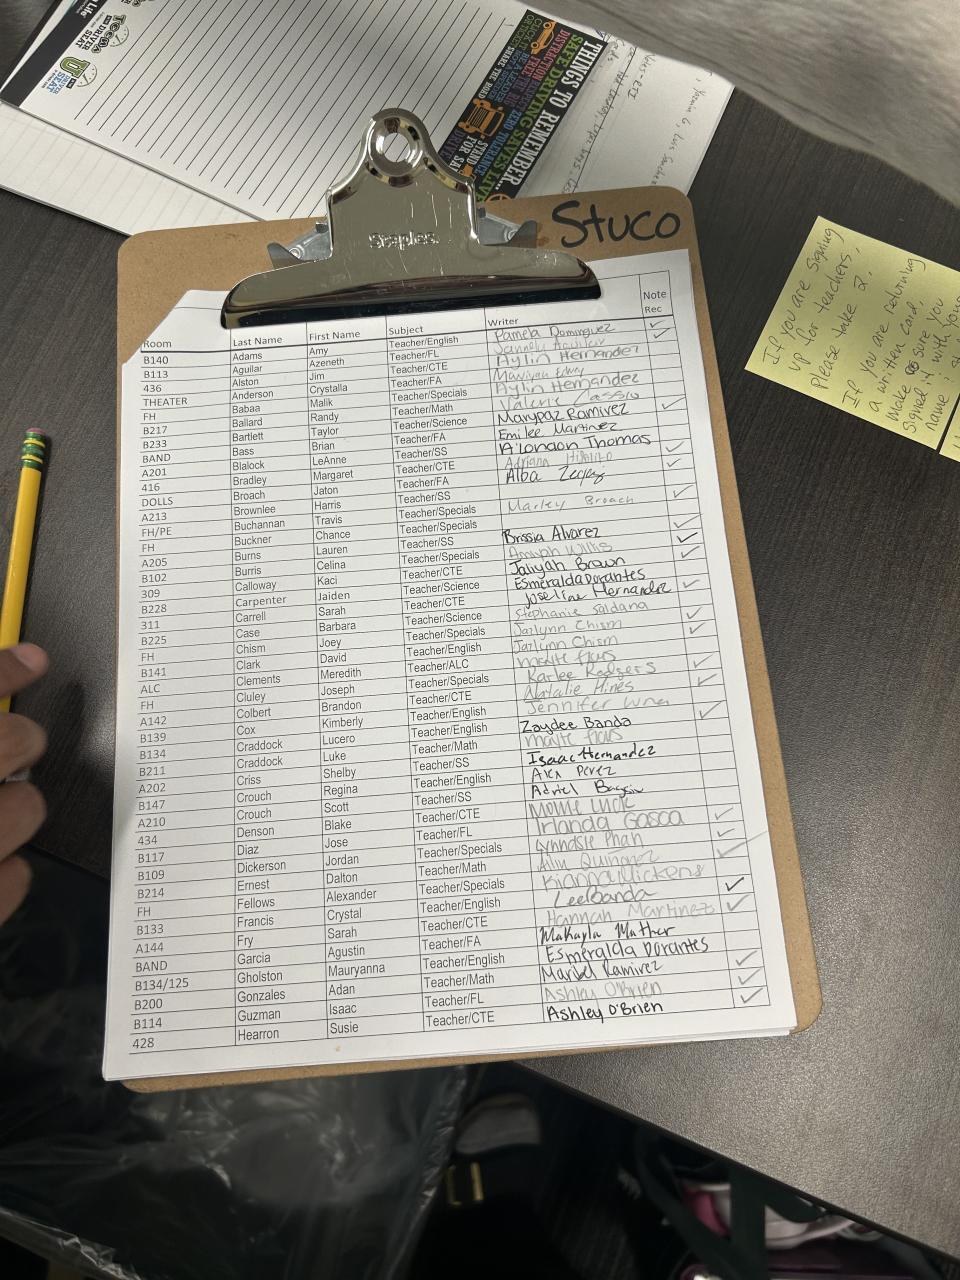 THINGS TO REMEMBER...
SAFE DRIVING SAVES LIVES
DISTRACTION
ZERO TOLERANCE
SHARE THE ROAD
Staples
Stuco
If you are signing
up for teachers,
Please take 2.
If you are returning
a written card
make sure you
signed it with your
name
Room Last Name First Name Subject Writer Note Rec
B140 Adams Amy Teacher/English Pamela Dominguez ✓
B113 Aguilar Azeneth Teacher/FL Aguilar ✓
436 Alston Jim Teacher/CTE Aylin Hernandez
THEATER Anderson Crystalla Teacher/FA
FH Babaa Malik Teacher/Specials Aylin Hernandez
B217 Ballard Randy Teacher/Math Valerie
B233 Bartlett Taylor Teacher/Science Marypaz Ramirez ✓
BAND Bass Brian Teacher/FA Emilee Martinez
A201 Blalock LeAnne Teacher/SS A'London Thomas
416 Bradley Margaret Teacher/CTE Adriana Hipolito ✓
DOLLS Broach Jaton Teacher/FA Alba ✓
A213 Brownlee Harris Teacher/SS
FH/PE Buchannan Travis Teacher/Specials Marley Broach ✓
FH Buckner Chance Teacher/Specials
A205 Burns Lauren Teacher/SS Brissia Alvarez ✓
B102 Burris Celina Teacher/Specials Amiyah Willis ✓
309 Calloway Kaci Teacher/CTE Jaliyah Brown ✓
B228 Carpenter Jaiden Teacher/Science Esmeralda Dorantes
311 Carrell Sarah Teacher/CTE Joseline Hernandez ✓
B225 Case Barbara Teacher/Science Stephanie Saldana
FH Chism Joey Teacher/Specials Jazlynn Chism ✓
B141 Clark David Teacher/English Jazlynn Chism ✓
ALC Clements Meredith Teacher/ALC mayte flores
FH Cluley Joseph Teacher/Specials Karlee Rodgers ✓
A142 Colbert Brandon Teacher/CTE Natalie Hines ✓
B139 Cox Kimberly Teacher/English Jennifer Luna
B134 Craddock Lucero Teacher/English Zaydee Banda ✓
B211 Craddock Luke Teacher/Math mayte flores
A202 Criss Shelby Teacher/SS Isaac Hernandez
B147 Crouch Regina Teacher/English Alex Perez
A210 Crouch Scott Teacher/SS Adriel
434 Denson Blake Teacher/CTE
B117 Diaz Jose Teacher/FL Irlanda Gasca ✓
B109 Dickerson Jordan Teacher/Specials Lynndsie Phan ✓
B214 Ernest Dalton Teacher/Math Ailin Quinonez ✓
FH Fellows Alexander Teacher/Specials Kionna Dickens
B133 Francis Crystal Teacher/English Lee Banda ✓
A144 Fry Sarah Teacher/CTE Hannah Martinez ✓
BAND Garcia Agustin Teacher/FA Makayla Mather
B134/125 Gholston Mauryanna Teacher/English Esmeralda Dorantes
B200 Gonzales Adan Teacher/Math Maribel Ramirez ✓
B114 Guzman Isaac Teacher/FL Ashley O'Brien ✓
428 Hearron Susie Teacher/CTE Ashley O'Brien ✓